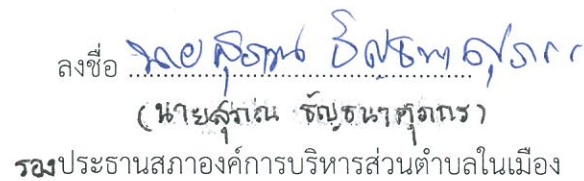 ลงชื่อ นายสุรณ ธัญธนาศุภกร
(นายสุรณ ธัญธนาศุภกร)
รองประธานสภาองค์การบริหารส่วนตำบลในเมือง